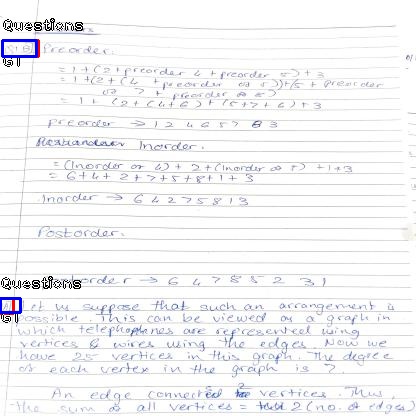 Questions
Preorder.
61
= 1 + (2 + preorder 4 + preorder 5) + 3
= 1 + (2 + (4 + preorder of 5)) + (5 + preorder
of 7 + preorder of 5)
= 1 + (2 + (4 + 6) + (5 + 7 + 6) + 3
preorder → 1 2 4 6 5 7 8 3
Inorder.
= (Inorder of 4) + 2 + (Inorder of 5) + 1 + 3
= 6 + 4 + 2 + 7 + 5 + 8 + 1 + 3
Inorder → 6 4 2 7 5 8 1 3
Postorder.
Questions
→ 6 4 7 8 5 2 3 1
Let us suppose that such an arrangement is
61 possible. This can be viewed as a graph in
which telephones are represented using
vertices & wires using the edges. Now we
have 25 vertices in this graph. The degree
of each vertex in the graph is 7.
An edge connects 2 vertices. Thus,
the sum of all vertices = 2 (no. of edges)